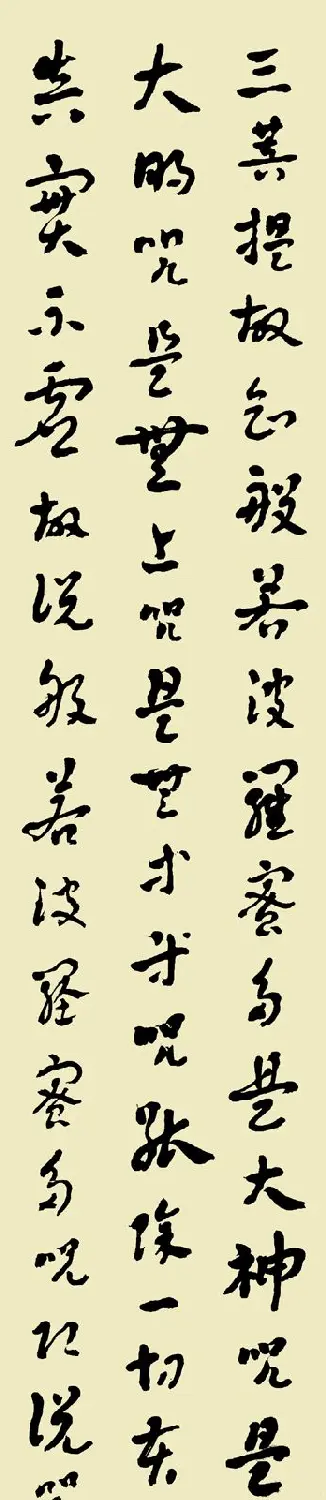 三菩提故知般若波羅蜜多是大神咒是
大明咒是無上咒是無等等咒能除一切苦
真實不虛故說般若波羅蜜多咒即說咒